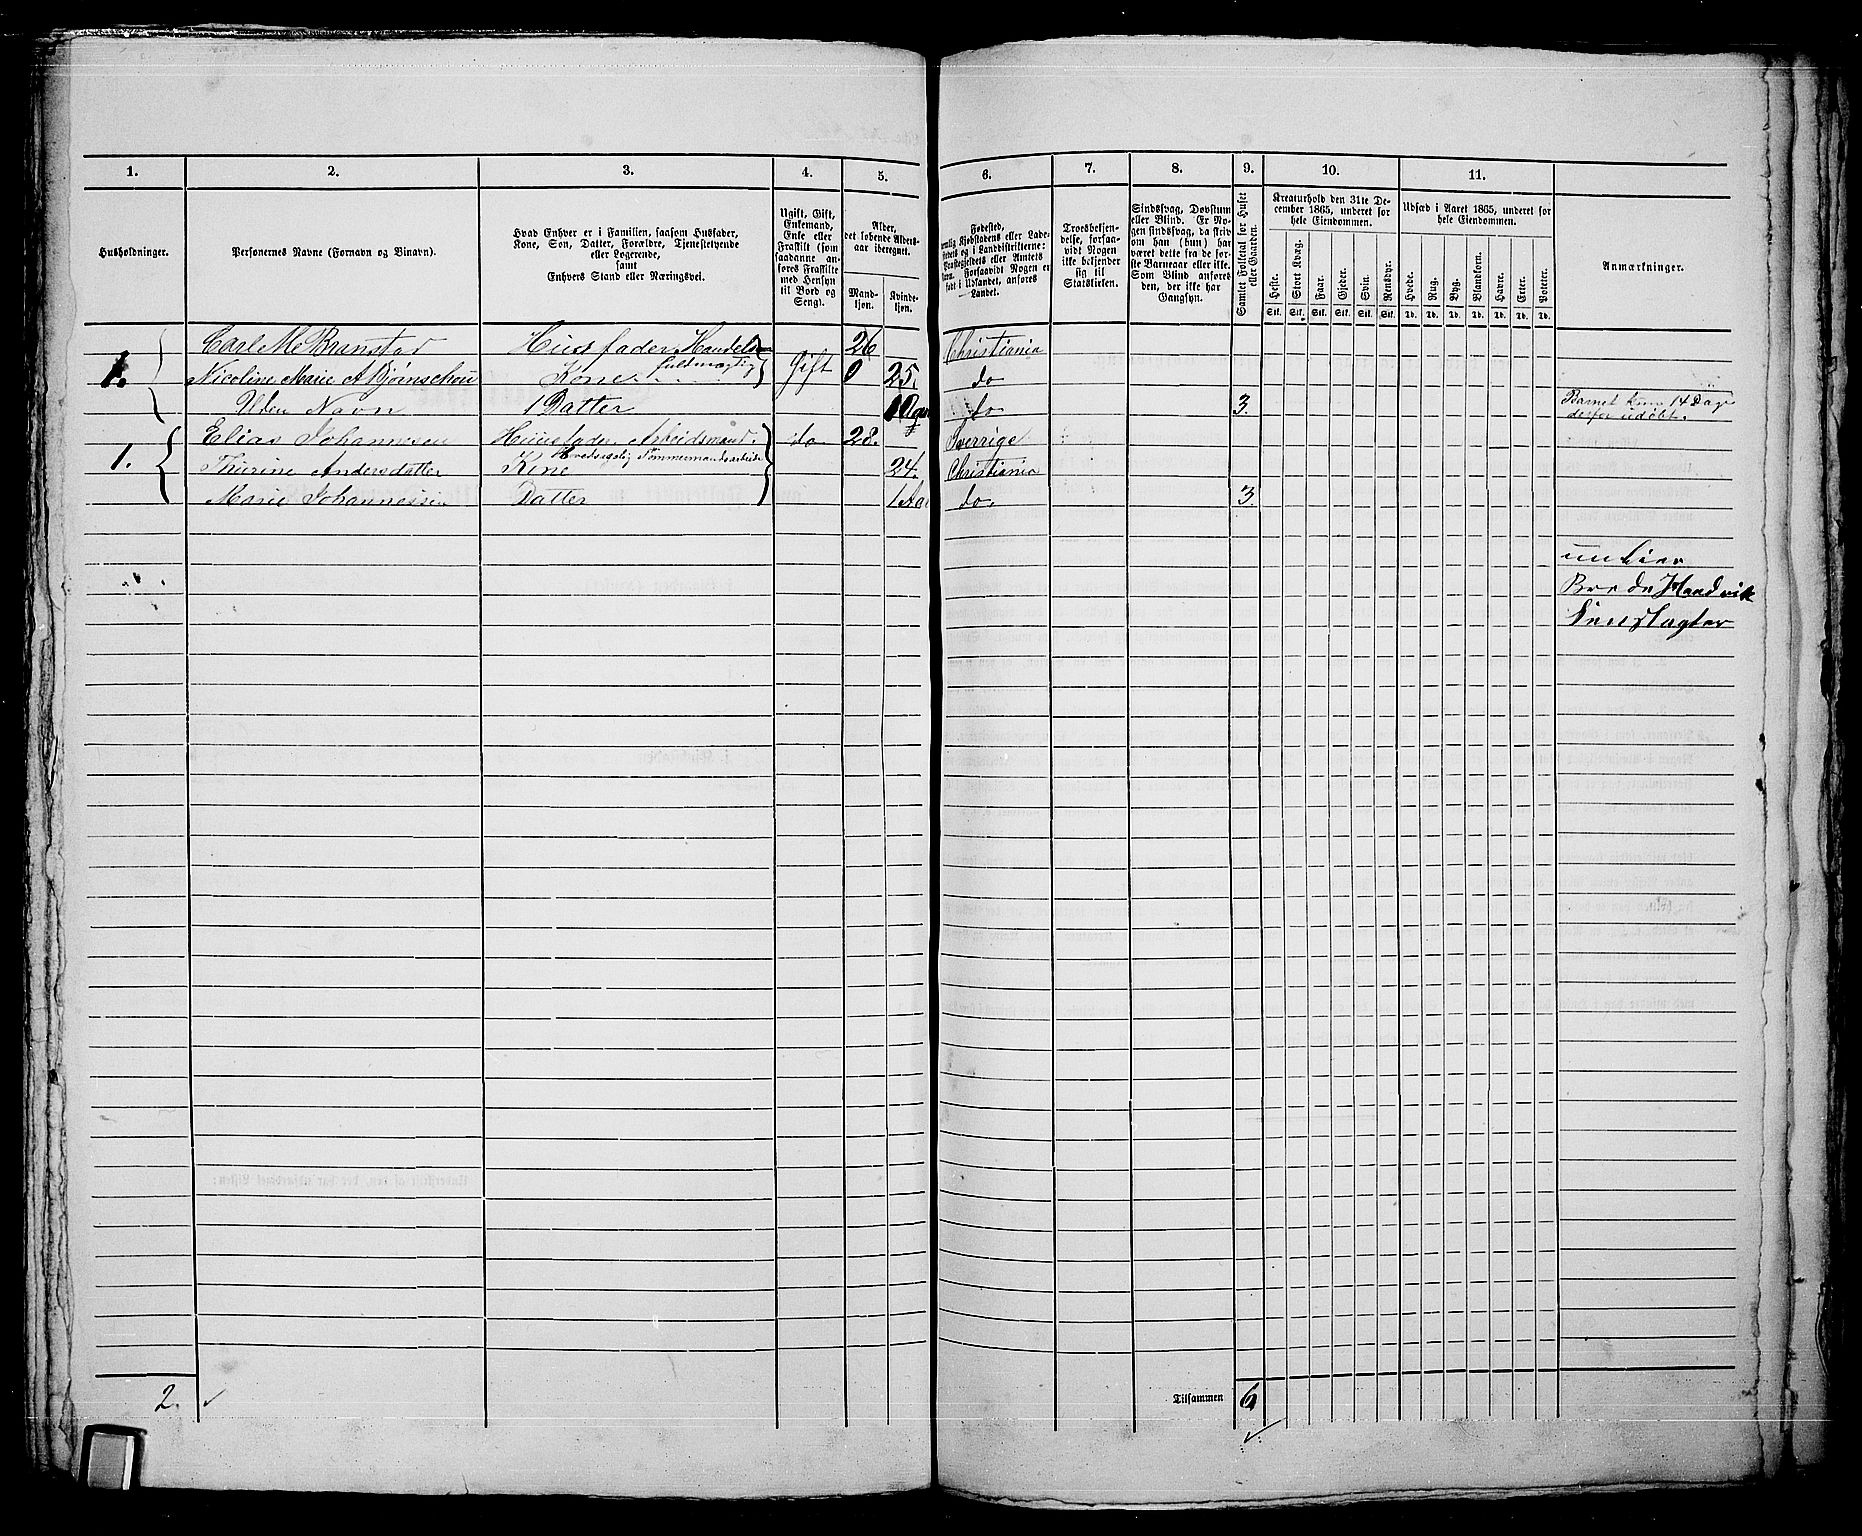 1. 2. 3. 4. 5. 6. 7. 8. 9. 10. 11.
Husholdninger.
Personernes Navne (Fornavn og Binavn).
Hvad Enhver er i Familien, saasom Husfader,
Kone, Søn, Datter, Forældre, Tjenestetyende
eller Logerende,
samt
Enhvers Stand eller Næringsvei.
Ugift, Gift,
Enkemand,
Enke eller
Fraskilt (som
saadanne an-
føres Fraskilte
med Hensyn
til Bord og
Seng).
Alder,
det løbende Alders-
aar iberegnet.
Mand-
kjøn.
Kvinde-
kjøn.
Fødested,
nemlig Kjøbstadens eller Lade-
stedets og i Landdistrikterne:
Præstegjeldets eller Amtets
Navn. Forsaavidt Nogen er
født i Udlandet, anføres
Landet.
Troesbekjen-
delse, forsaa-
vidt Nogen
ikke bekjender
sig til
Statskirken.
Sindssvag, Døvstum
eller Blind. Er No-
gen sindssvag, da skriv
om han (hun) har
været dette fra de før-
ste Barneaar eller ikke.
Som Blind anføres
den, der ikke har
Gangsyn.
Samlet Folketal for Huset
eller Gaarden.
Kreaturhold den 31te De-
cember 1865, underet for
hele Eiendommen.
Heste. Stort Kvæg. Faar. Gjeder. Sviin. Rensdyr.
Stk. Stk. Stk. Stk. Stk. Stk.
Udsæd i Aaret 1865, underet for
hele Eiendommen.
Hvede. Rug. Byg. Blandkorn. Havre. Erter. Poteter.
Td. Td. Td. Td. Td. Td. Td.
Anmærkninger.
Carl M Branstad Husfader, Handels 26 Christiania
fuldmægtig
1. Nicoline Marie A Bjørnschou Kone Gift 0 25. do
Uden Navn 1 Datter do 3. Barnet kun 14 Dage
derfor udøbt.
Elias Johannesen Huusfader, Arbeidsmand. do 28. Sverrige
Hovedsagelig Tømmermandsarbeide
1. Thurine Andersdatter Kone 24. Christiania
Marie Johannessen Datter 1 Aar do. 3.
Haadvik
2. Tilsammen 6